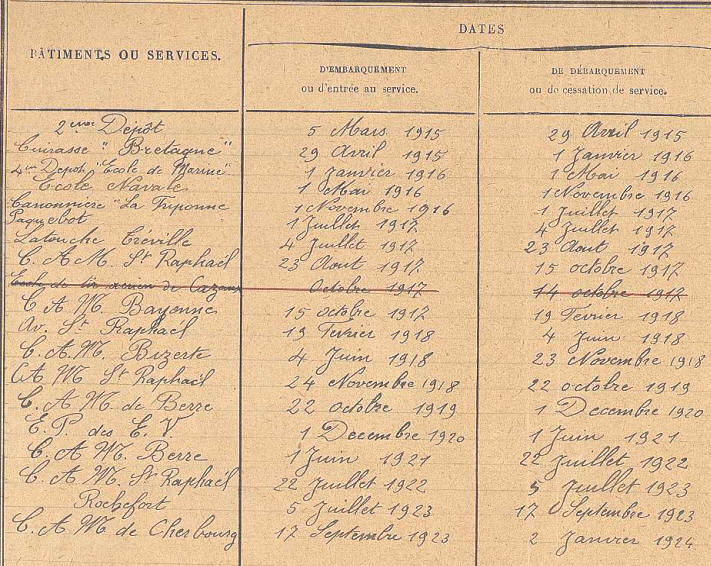 DATES
BÂTIMENTS OU SERVICES.
D'EMBARQUEMENT
ou d'entrée au service.
DE DÉBARQUEMENT
ou de cessation de service.
2eme Dépôt 5 Mars 1915 29 Avril 1915
Cuirasse "Bretagne" 29 Avril 1915 1 Janvier 1916
4eme Depot "Ecole de Marine" 1 Janvier 1916 1 Mai 1916
Ecole Navale 1 Mai 1916 1 Novembre 1916
Canonniere "La Friponne 1 Novembre 1916 1 Juillet 1917
Paquebot 1 Juillet 1917 4 Juillet 1917
Latouche Tréville 4 Juillet 1917 23 Aout 1917
C. A. M. St Raphaël 23 Aout 1917 15 octobre 1917
Ecole de tir aerien de Cazaux Octobre 1917 14 octobre 1917
C A M. Bayonne 15 octobre 1917 19 Fevrier 1918
Av. St Raphaël 19 Fevrier 1918 4 Juin 1918
C. A. M. Bizerte 4 Juin 1918 23 Novembre 1918
CA M St Raphaël 24 Novembre 1918 22 octobre 1919
C. A M. de Berre 22 octobre 1919 1 Decembre 1920
E. P. des E. V. 1 Decembre 1920 1 Juin 1921
C. A M. Berre 1 Juin 1921 22 Juillet 1922
C. A M. St Raphaël 22 Juillet 1922 5 Juillet 1923
Rochefort 5 Juillet 1923 17 Septembre 1923
C. A M de Cherbourg 17 Septembre 1923 2 Janvier 1924